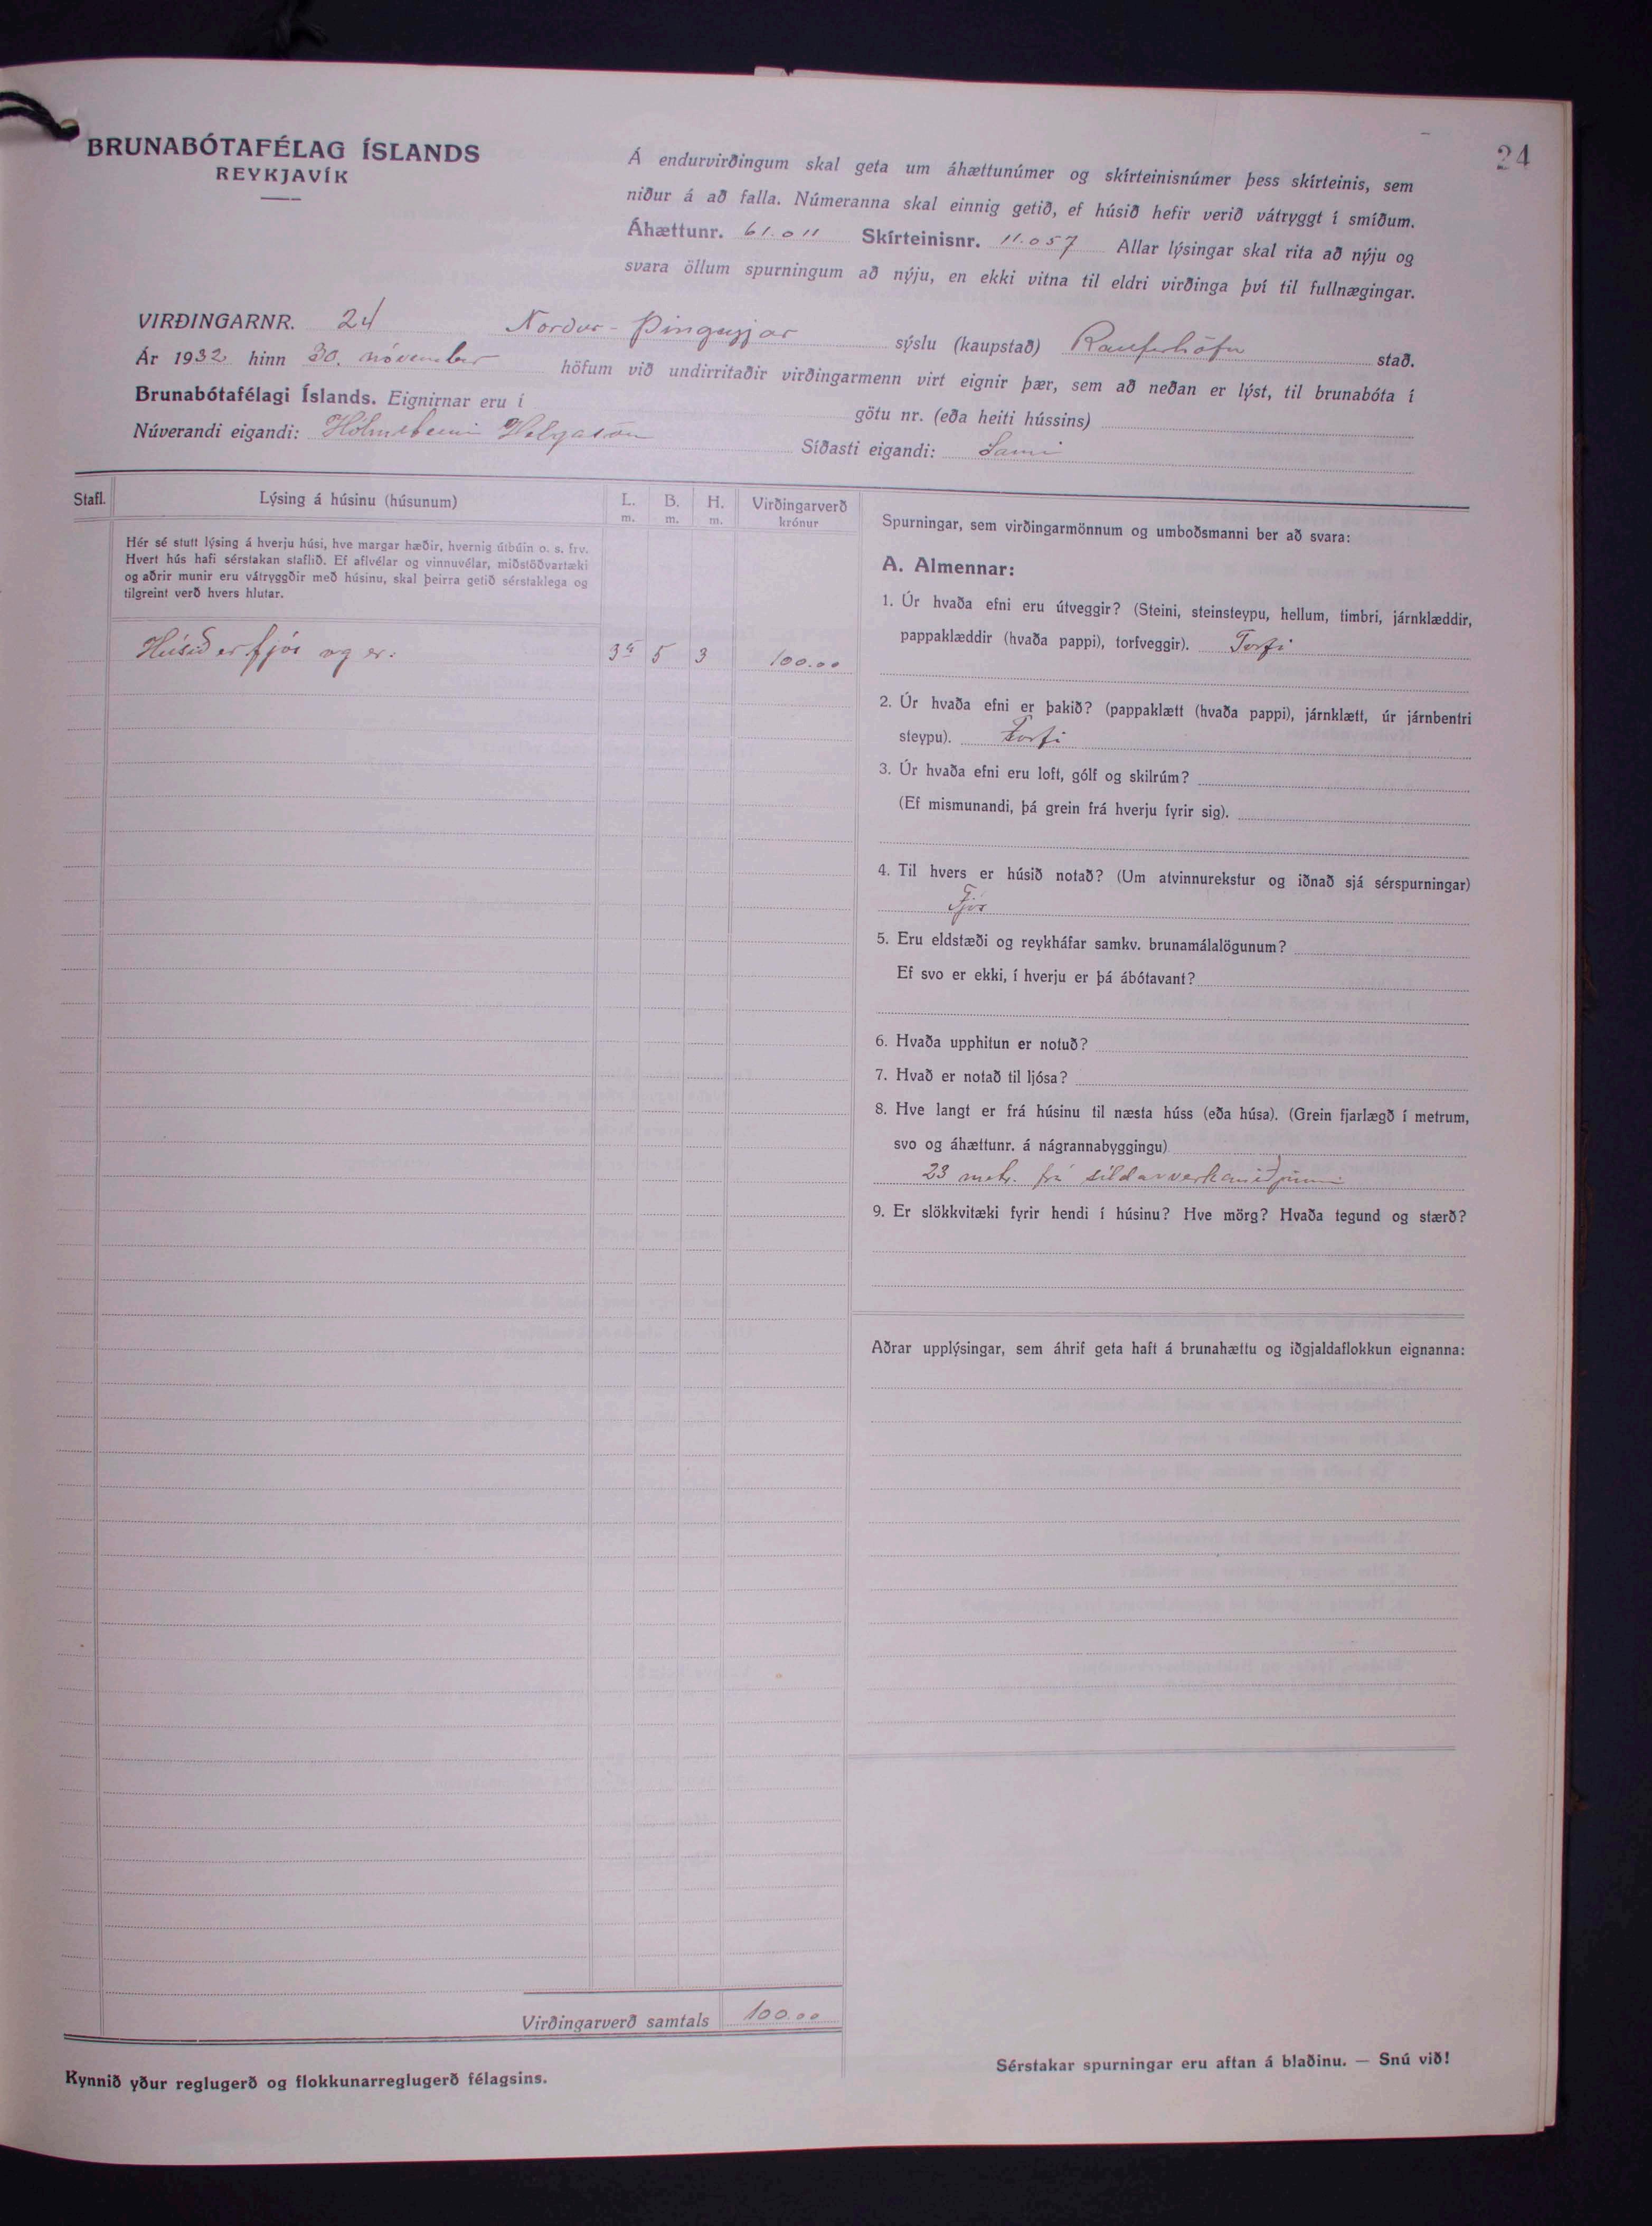 24
BRUNABÓTAFÉLAG ÍSLANDS
REYKJAVÍK
Á endurvirðingum skal geta um áhættunúmer og skírteinisnúmer þess skírteinis, sem
niður á að falla. Númeranna skal einnig getið, ef húsið hefir verið vátryggt í smíðum.
Áhættunr. 61.011 Skírteinisnr. 11.057 Allar lýsingar skal rita að nýju og
svara öllum spurningum að nýju, en ekki vitna til eldri virðinga því til fullnægingar.
VIRÐINGARNR. 24 Norður-Þingeyjar sýslu (kaupstað) Raufarhöfn stað.
Ár 1932 hinn 30. nóvember höfum við undirritaðir virðingarmenn virt eignir þær, sem að neðan er lýst, til brunabóta í
Brunabótafélagi Íslands. Eignirnar eru í götu nr. (eða heiti hússins)
Núverandi eigandi: Hólmsteinn Helgason Síðasti eigandi: Sami
Stafl. Lýsing á húsinu (húsunum) L. m. B. m. H. m. Virðingarverð krónur
Hér sé stutt lýsing á hverju húsi, hve margar hæðir, hvernig útbúin o. s. frv.
Hvert hús hafi sérstakan staflið. Ef aflvélar og vinnuvélar, miðstöðvartæki
og aðrir munir eru vátryggðir með húsinu, skal þeirra getið sérstaklega og
tilgreint verð hvers hlutar.
Húsið er fjós og er: 5 3 100.00
Virðingarverð samtals 100.00
Kynnið yður reglugerð og flokkunarreglugerð félagsins.
Spurningar, sem virðingarmönnum og umboðsmanni ber að svara:
A. Almennar:
1. Úr hvaða efni eru útveggir? (Steini, steinsteypu, hellum, timbri, járnklæddir,
pappaklæddir (hvaða pappi), torfveggir). Torfi
2. Úr hvaða efni er þakið? (pappaklætt (hvaða pappi), járnklætt, úr járnbentri
steypu). Torfi
3. Úr hvaða efni eru loft, gólf og skilrúm?
(Ef mismunandi, þá grein frá hverju fyrir sig).
4. Til hvers er húsið notað? (Um atvinnurekstur og iðnað sjá sérspurningar)
Fjós
5. Eru eldstæði og reykháfar samkv. brunamálalögunum?
Ef svo er ekki, í hverju er þá ábótavant?
6. Hvaða upphitun er notuð?
7. Hvað er notað til ljósa?
8. Hve langt er frá húsinu til næsta húss (eða húsa). (Grein fjarlægð í metrum,
svo og áhættunr. á nágrannabyggingu)
23 metr. frá síldarverksmiðjunni
9. Er slökkvitæki fyrir hendi í húsinu? Hve mörg? Hvaða tegund og stærð?
Aðrar upplýsingar, sem áhrif geta haft á brunahættu og iðgjaldaflokkun eignanna:
Sérstakar spurningar eru aftan á blaðinu. — Snú við!